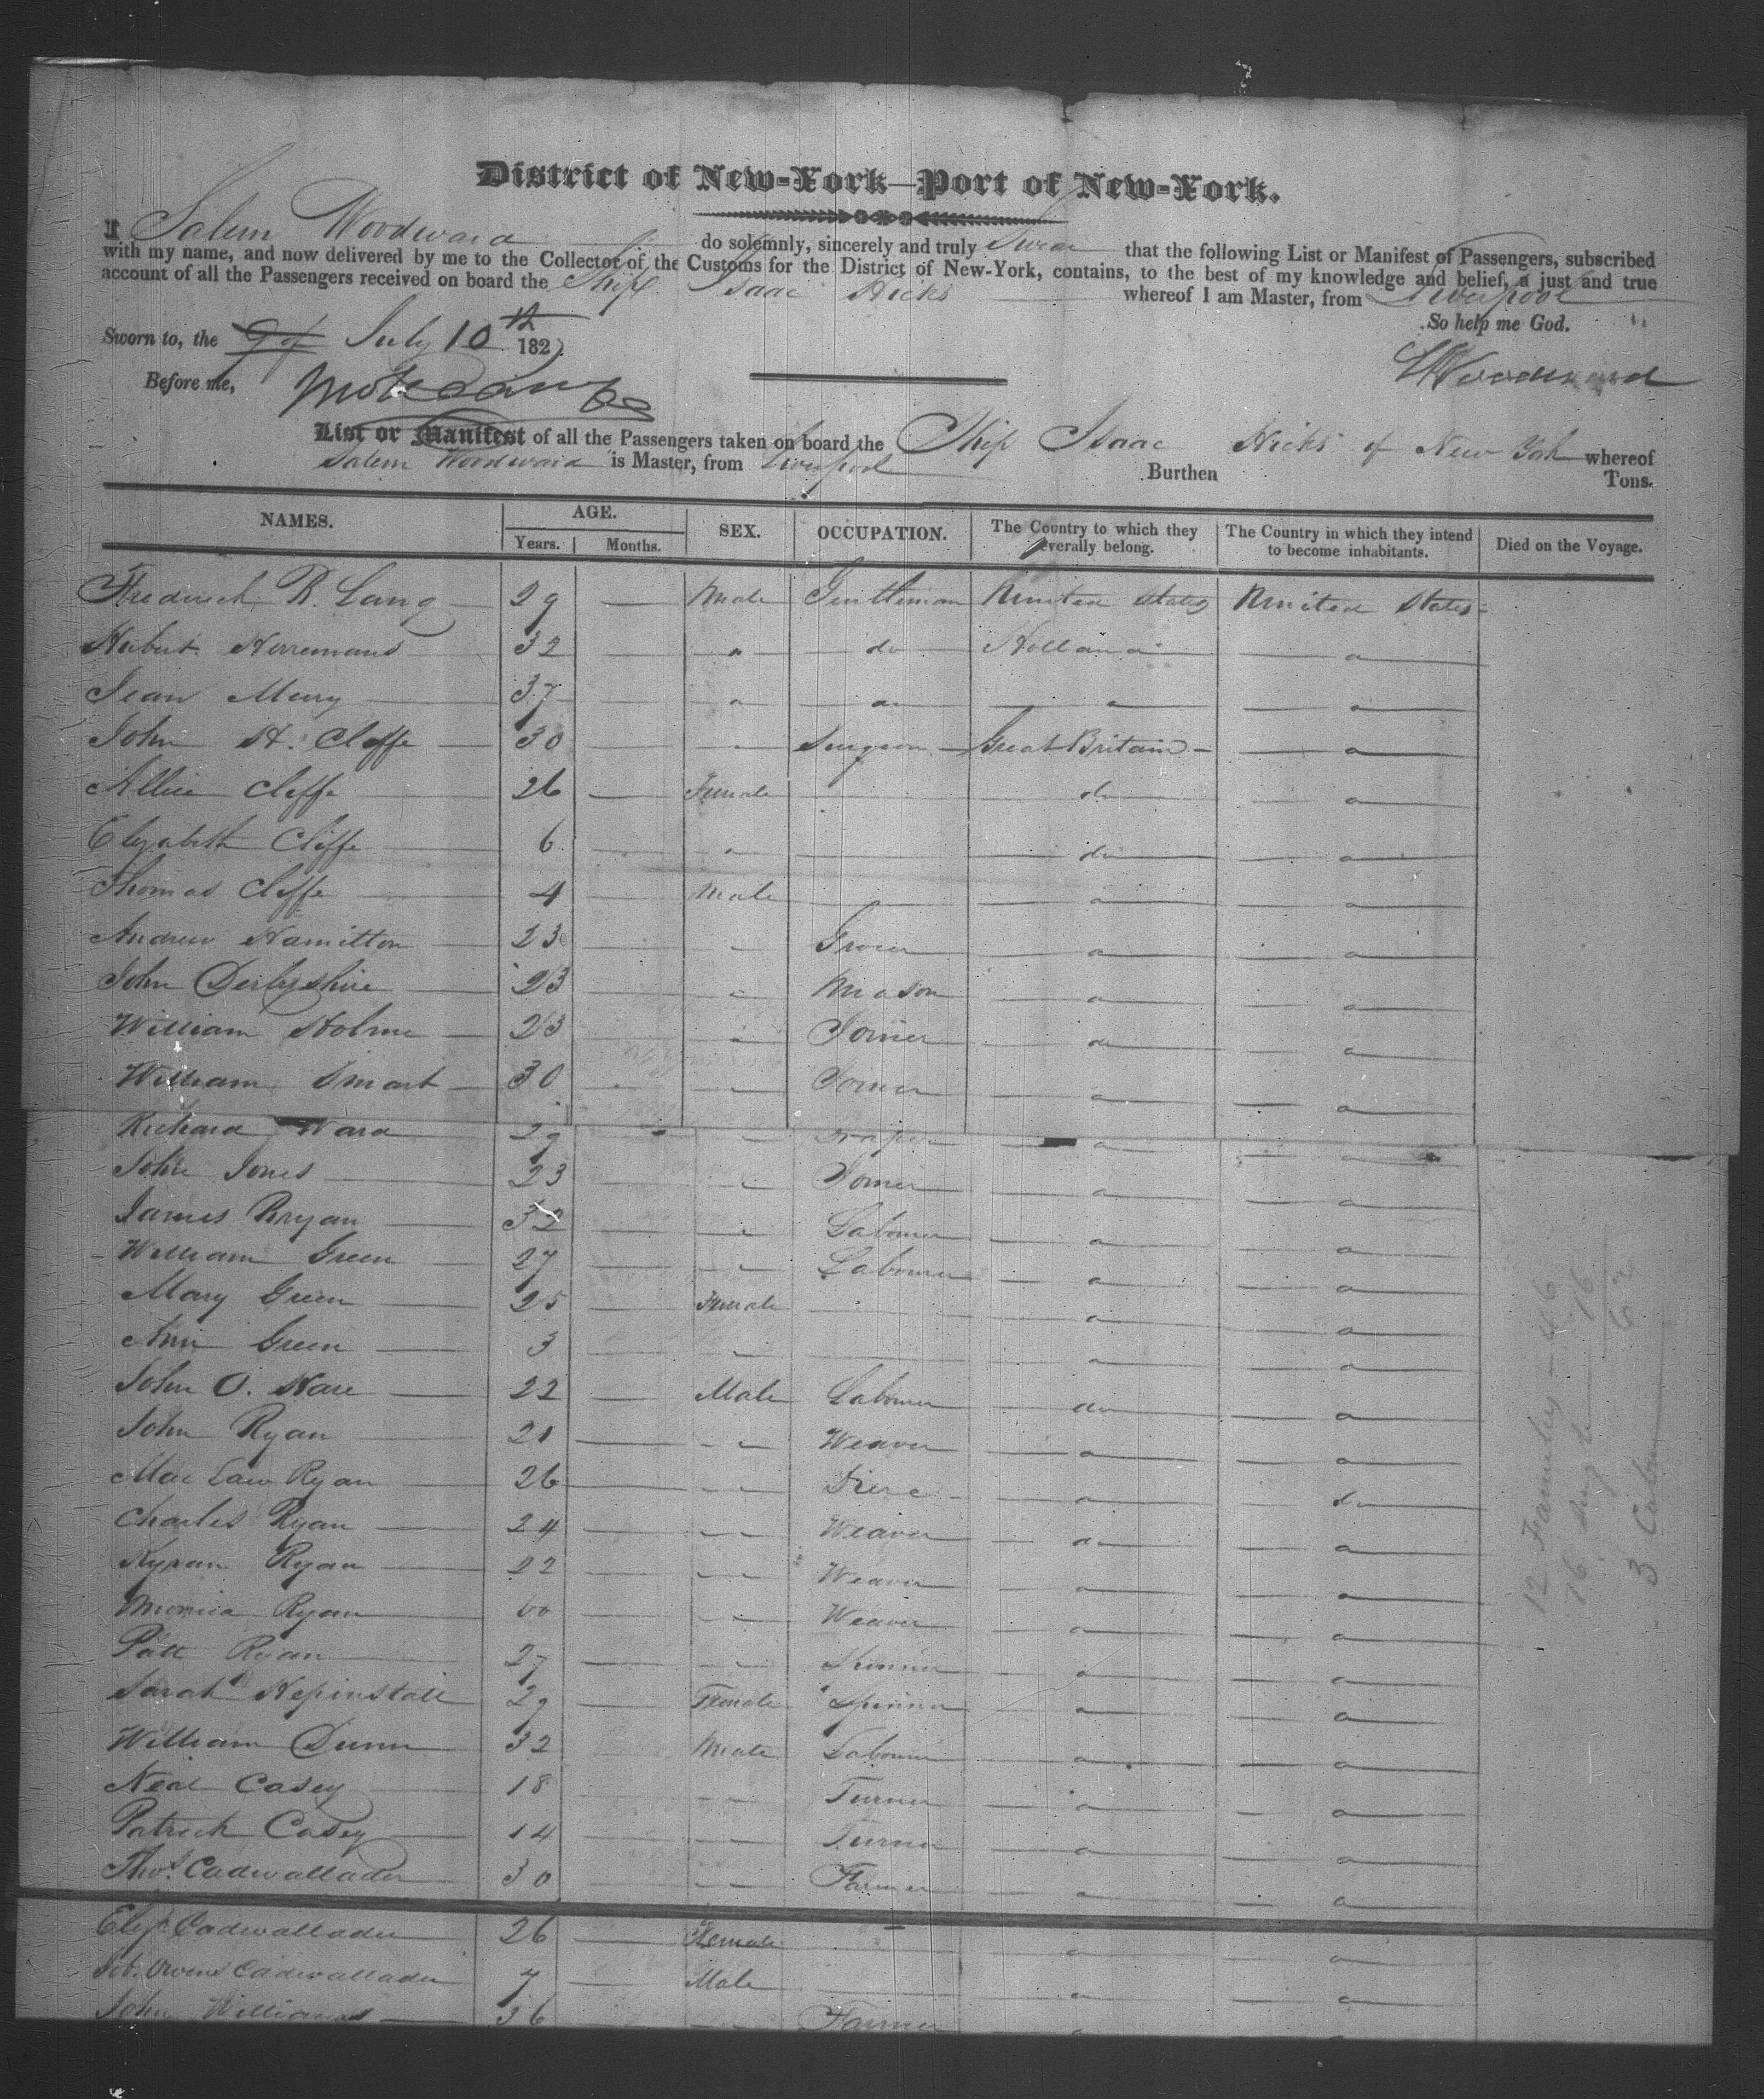 District of New-York—Port of New-York.
I Salem Woodward do solemnly, sincerely and truly Swear that the following List or Manifest of Passengers, subscribed
with my name, and now delivered by me to the Collector of the Customs for the District of New-York, contains, to the best of my knowledge and belief, a just and true
account of all the Passengers received on board the Ship Isaac Hicks whereof I am Master, from Liverpool
So help me God.
Sworn to, the July 10th 1827
SWoodward
Before me,
List or Manifest of all the Passengers taken on board the Ship Isaac Hicks of New York whereof
Salem Woodward is Master, from Liverpool Burthen Tons.
NAMES. AGE. Years. Months. SEX. OCCUPATION. The Country to which they severally belong. The Country in which they intend to become inhabitants. Died on the Voyage.
Frederick R. Lang 29 Male Gentleman United States United States
Hubert Herremans 32 " do Holland "
Jean Meury 37 " " " "
John H. Cleffe 30 " Surgeon Great Britain "
Allice Cleffe 26 Female do "
Elizabeth Cliffe 6 " do "
Thomas Cleffe 4 Male " "
Andrew Hamilton 23 " Grocer " "
John Derbyshire 23 " Mason " "
William Holme 23 " Joiner do "
William Smart 30 " Joiner " "
Richard Ward 29 " Draper " "
John Jones 23 " Joiner " "
James Bryan 32 " Labourer " "
William Green 27 " " Labourer " "
Mary Green 25 Female " "
Ann Green 3 " " "
John O. Hare 22 Male Labourer do "
John Ryan 21 " " Weaver " "
Ryan 26 " " " do
Charles Ryan 24 " " Weaver do "
Kyran Ryan 22 " " Weaver " "
Monica Ryan 60 " " Weaver " "
Patt Ryan 27 " " Spinner " "
Sarah Hepinstall 29 Female Spinner " "
William Dunn 32 Male Labourer " "
Neal Casey 18 " " Turner " "
Patrick Casey 14 " " Turner " "
Thos. Cadwallader 30 " " Farmer " "
Eliz. Cadwallader 26 Female " "
Owens Cadwallader 7 Male " "
John Williams 36 " " Farmer " "
12 Family — 46
16 Single 16
62
3 Cabin